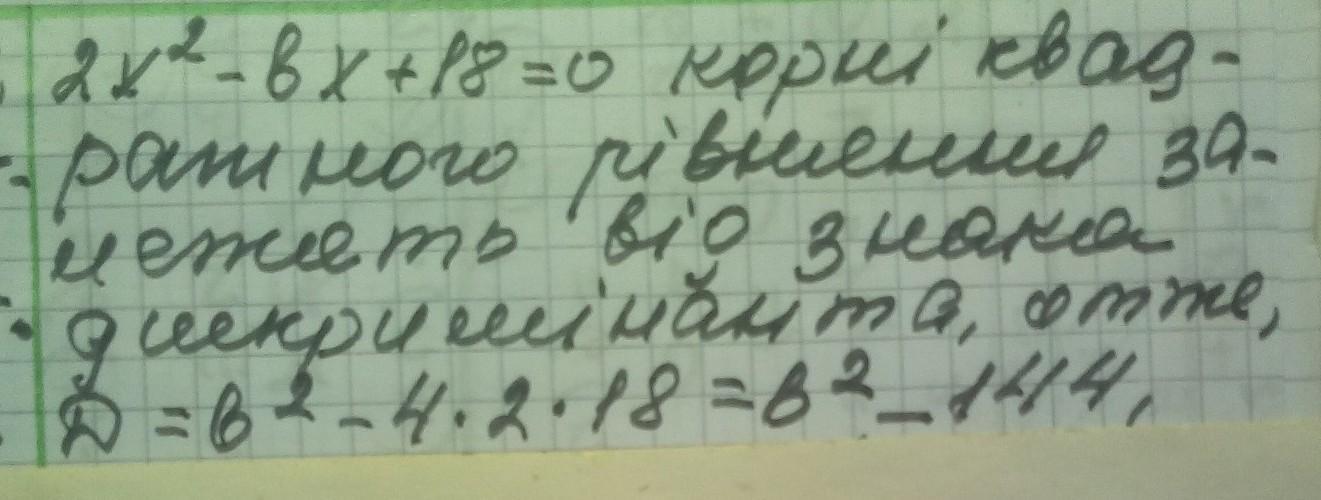 2x² - вx + 18 = 0 корні квад-
ратного рівняння за-
лежать від знака
дискримінанта, отже,
D = в² - 4 · 2 · 18 = в² - 144,